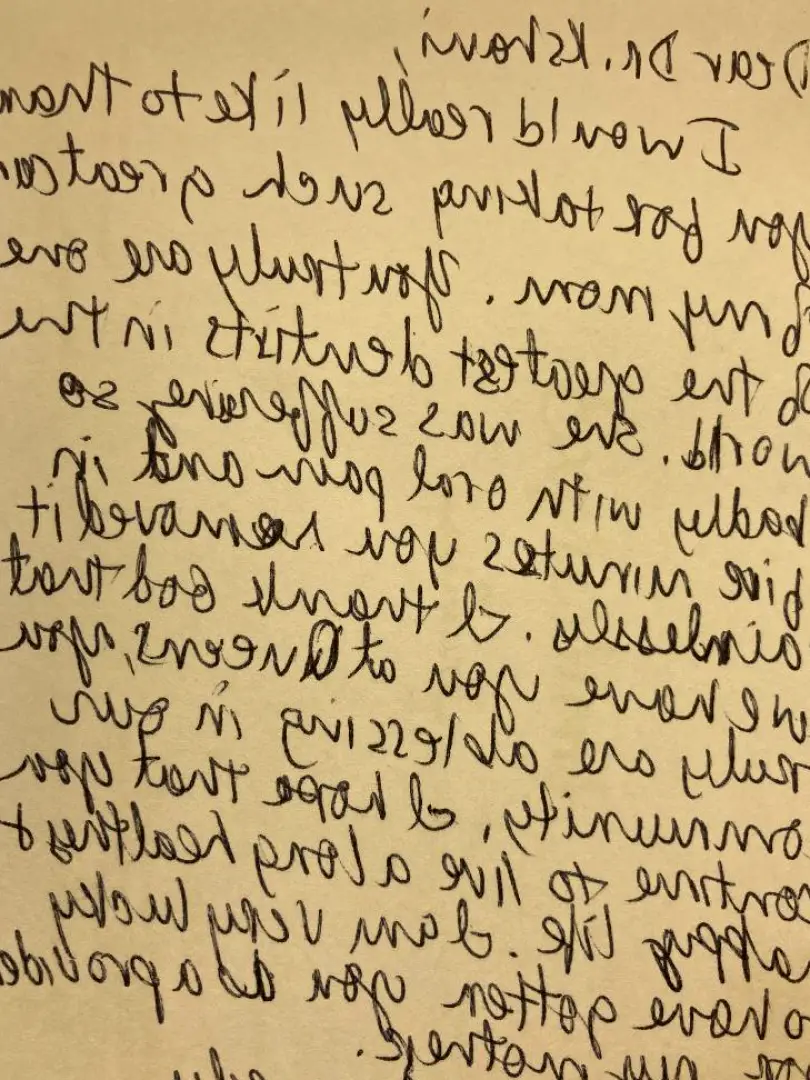 Dear Dr. Kshavi,
I would really like to than
you for taking such great car
of my mom. You truly are one
of the greatest dentists in the
world. She was suffering so
badly with oral pain and in
five minutes you removed it
ainlessly. I thank God that
we have you at Queens, you
ruly are a blessing in our
ommunity, I hope that you
ontine to live a long healthy &
appy life. I am very lucky
o have gotten you as a provide
for my mother.